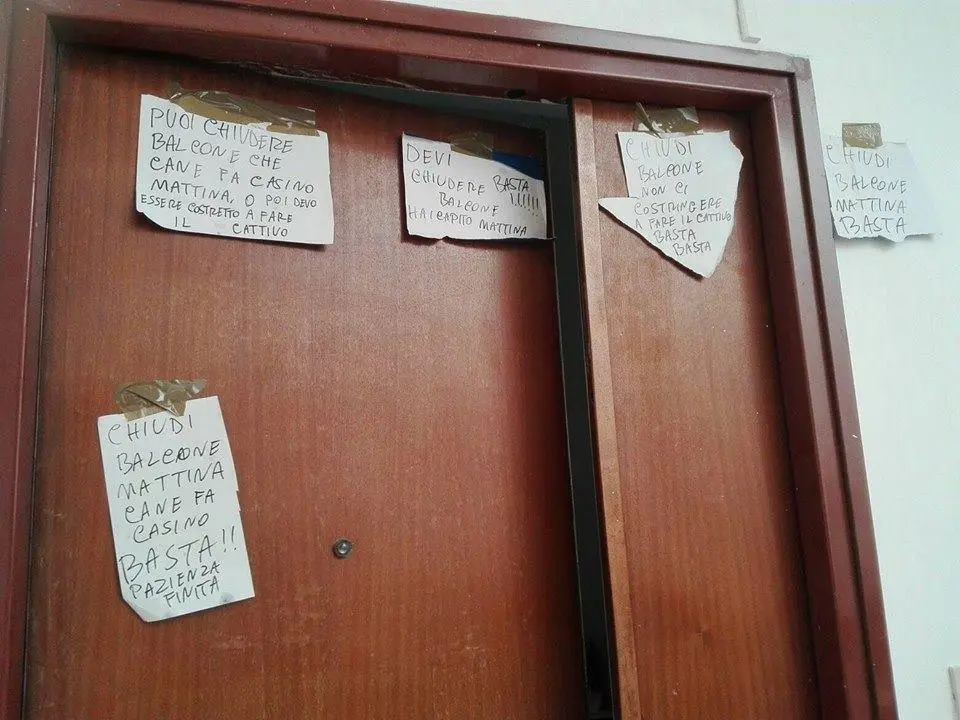 PUOI CHIUDERE
BALCONE CHE
CANE FA CASINO
MATTINA, O POI DEVO
ESSERE COSTRETTO A FARE
IL CATTIVO
DEVI
CHIUDERE BASTA
BALCONE !!!!!!
HAI CAPITO MATTINA
CHIUDI
BALCONE
NON CI
COSTRINGERE
A FARE IL CATTIVO
BASTA
BASTA
CHIUDI
BALCONE
MATTINA
BASTA
CHIUDI
BALCONE
MATTINA
CANE FA
CASINO
BASTA!!
PAZIENZA
FINITA